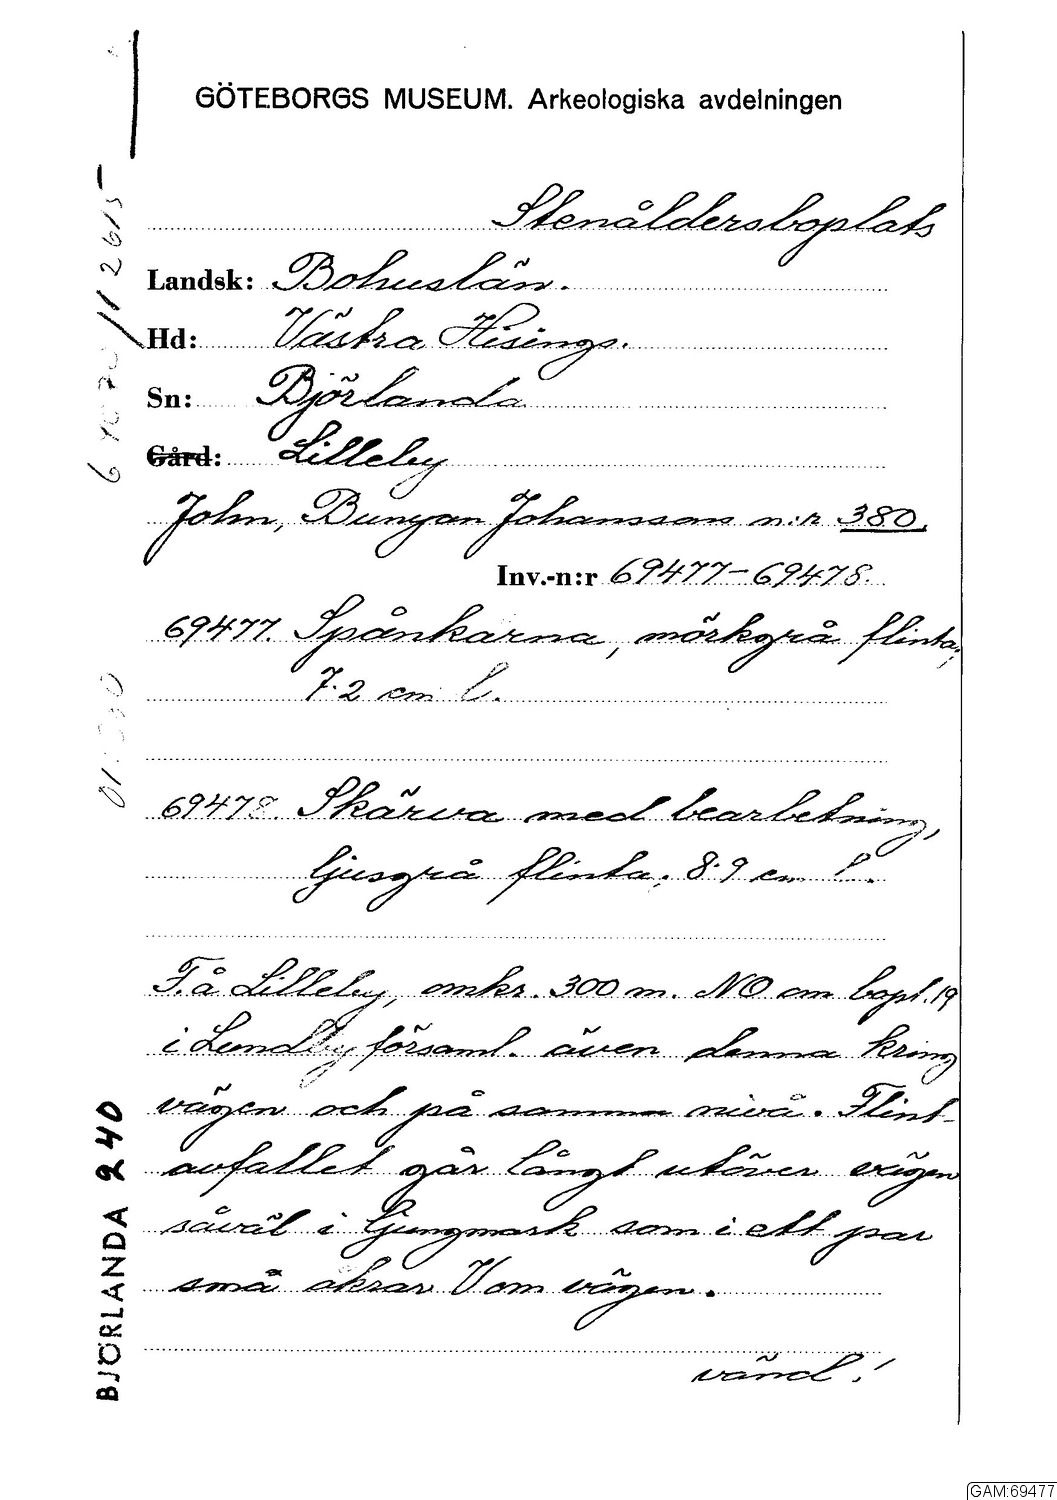 GÖTEBORGS MUSEUM. Arkeologiska avdelningen
Stenåldersboplats
Landsk: Bohuslän.
Hd: Västra Hisings.
Sn: Björlanda
Gård: Lilleby
John, Bunyan Johanssons n:r 380.
Inv.-n:r 69477-69478.
69477. Spånkärna, mörkgrå flinta;
7.2 cm l.
69478. Skärva med bearbetning,
ljusgrå flinta; 8.9 cm l.
F. å Lilleby, omkr. 300 m. NO om bopl. 19
i Lundby församl. även denna kring
vägen och på samma nivå. Flint-
avfallet går långt utöver vägen
såväl i ljungmark som i ett par
små åkrar V om vägen.
vänd!
BJÖRLANDA 240
GAM:69477